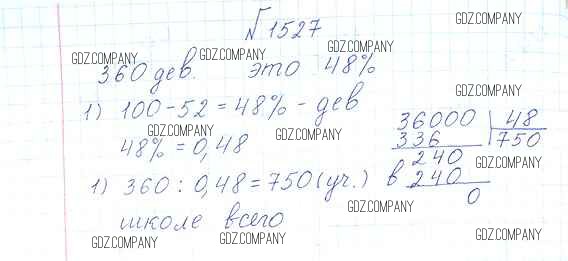 №1527
360 дев. это 48%
1) 100-52=48% - дев
48% = 0,48
1) 360 : 0,48 = 750 (уч.) в
школе всего
36000 | 48
336 750
240
240
0
GDZ.COMPANY
GDZ.COMPANY
GDZ.COMPANY
GDZ.COMPANY
GDZ.COMPANY
GDZ.COMPANY
GDZ.COMPANY
GDZ.COMPANY
GDZ.COMPANY
GDZ.COMPANY
GDZ.COMPANY
GDZ.COMPANY